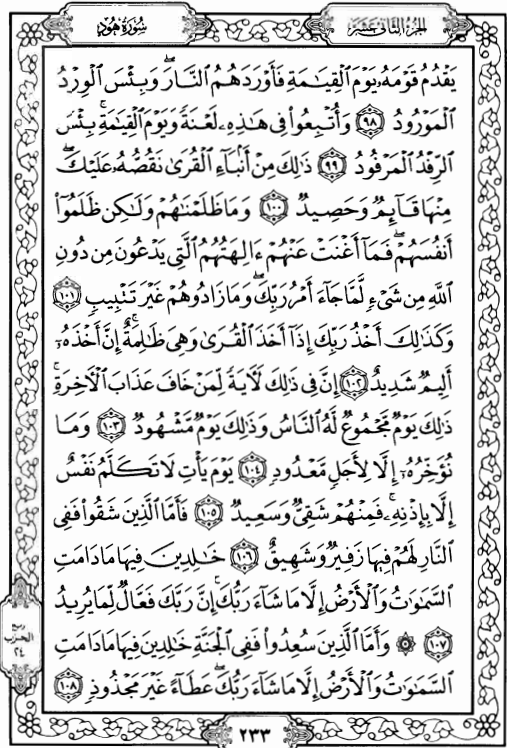 الجزء الثاني عشر
سُورَةُ هُود
يَقْدُمُ قَوْمَهُۥ يَوْمَ ٱلْقِيَٰمَةِ فَأَوْرَدَهُمُ ٱلنَّارَ ۖ وَبِئْسَ ٱلْوِرْدُ
ٱلْمَوْرُودُ ٩٨ وَأُتْبِعُوا۟ فِى هَٰذِهِۦ لَعْنَةً وَيَوْمَ ٱلْقِيَٰمَةِ ۚ بِئْسَ
ٱلرِّفْدُ ٱلْمَرْفُودُ ٩٩ ذَٰلِكَ مِنْ أَنۢبَآءِ ٱلْقُرَىٰ نَقُصُّهُۥ عَلَيْكَ ۖ
مِنْهَا قَآئِمٌ وَحَصِيدٌ ١٠٠ وَمَا ظَلَمْنَٰهُمْ وَلَٰكِن ظَلَمُوٓا۟
أَنفُسَهُمْ ۖ فَمَآ أَغْنَتْ عَنْهُمْ ءَالِهَتُهُمُ ٱلَّتِى يَدْعُونَ مِن دُونِ
ٱللَّهِ مِن شَىْءٍ لَّمَّا جَآءَ أَمْرُ رَبِّكَ ۖ وَمَا زَادُوهُمْ غَيْرَ تَتْبِيبٍ ١٠١
وَكَذَٰلِكَ أَخْذُ رَبِّكَ إِذَآ أَخَذَ ٱلْقُرَىٰ وَهِىَ ظَٰلِمَةٌ ۚ إِنَّ أَخْذَهُۥٓ
أَلِيمٌ شَدِيدٌ ١٠٢ إِنَّ فِى ذَٰلِكَ لَءَايَةً لِّمَنْ خَافَ عَذَابَ ٱلْءَاخِرَةِ ۚ
ذَٰلِكَ يَوْمٌ مَّجْمُوعٌ لَّهُ ٱلنَّاسُ وَذَٰلِكَ يَوْمٌ مَّشْهُودٌ ١٠٣ وَمَا
نُؤَخِّرُهُۥٓ إِلَّا لِأَجَلٍ مَّعْدُودٍ ١٠٤ يَوْمَ يَأْتِ لَا تَكَلَّمُ نَفْسٌ
إِلَّا بِإِذْنِهِۦ ۚ فَمِنْهُمْ شَقِىٌّ وَسَعِيدٌ ١٠٥ فَأَمَّا ٱلَّذِينَ شَقُوا۟ فَفِى
ٱلنَّارِ لَهُمْ فِيهَا زَفِيرٌ وَشَهِيقٌ ١٠٦ خَٰلِدِينَ فِيهَا مَا دَامَتِ
ٱلسَّمَٰوَٰتُ وَٱلْأَرْضُ إِلَّا مَا شَآءَ رَبُّكَ ۚ إِنَّ رَبَّكَ فَعَّالٌ لِّمَا يُرِيدُ
١٠٧ ۞ وَأَمَّا ٱلَّذِينَ سُعِدُوا۟ فَفِى ٱلْجَنَّةِ خَٰلِدِينَ فِيهَا مَا دَامَتِ
ٱلسَّمَٰوَٰتُ وَٱلْأَرْضُ إِلَّا مَا شَآءَ رَبُّكَ ۖ عَطَآءً غَيْرَ مَجْذُوذٍ ١٠٨
ربع
الحزب
٢٤
٢٣٣